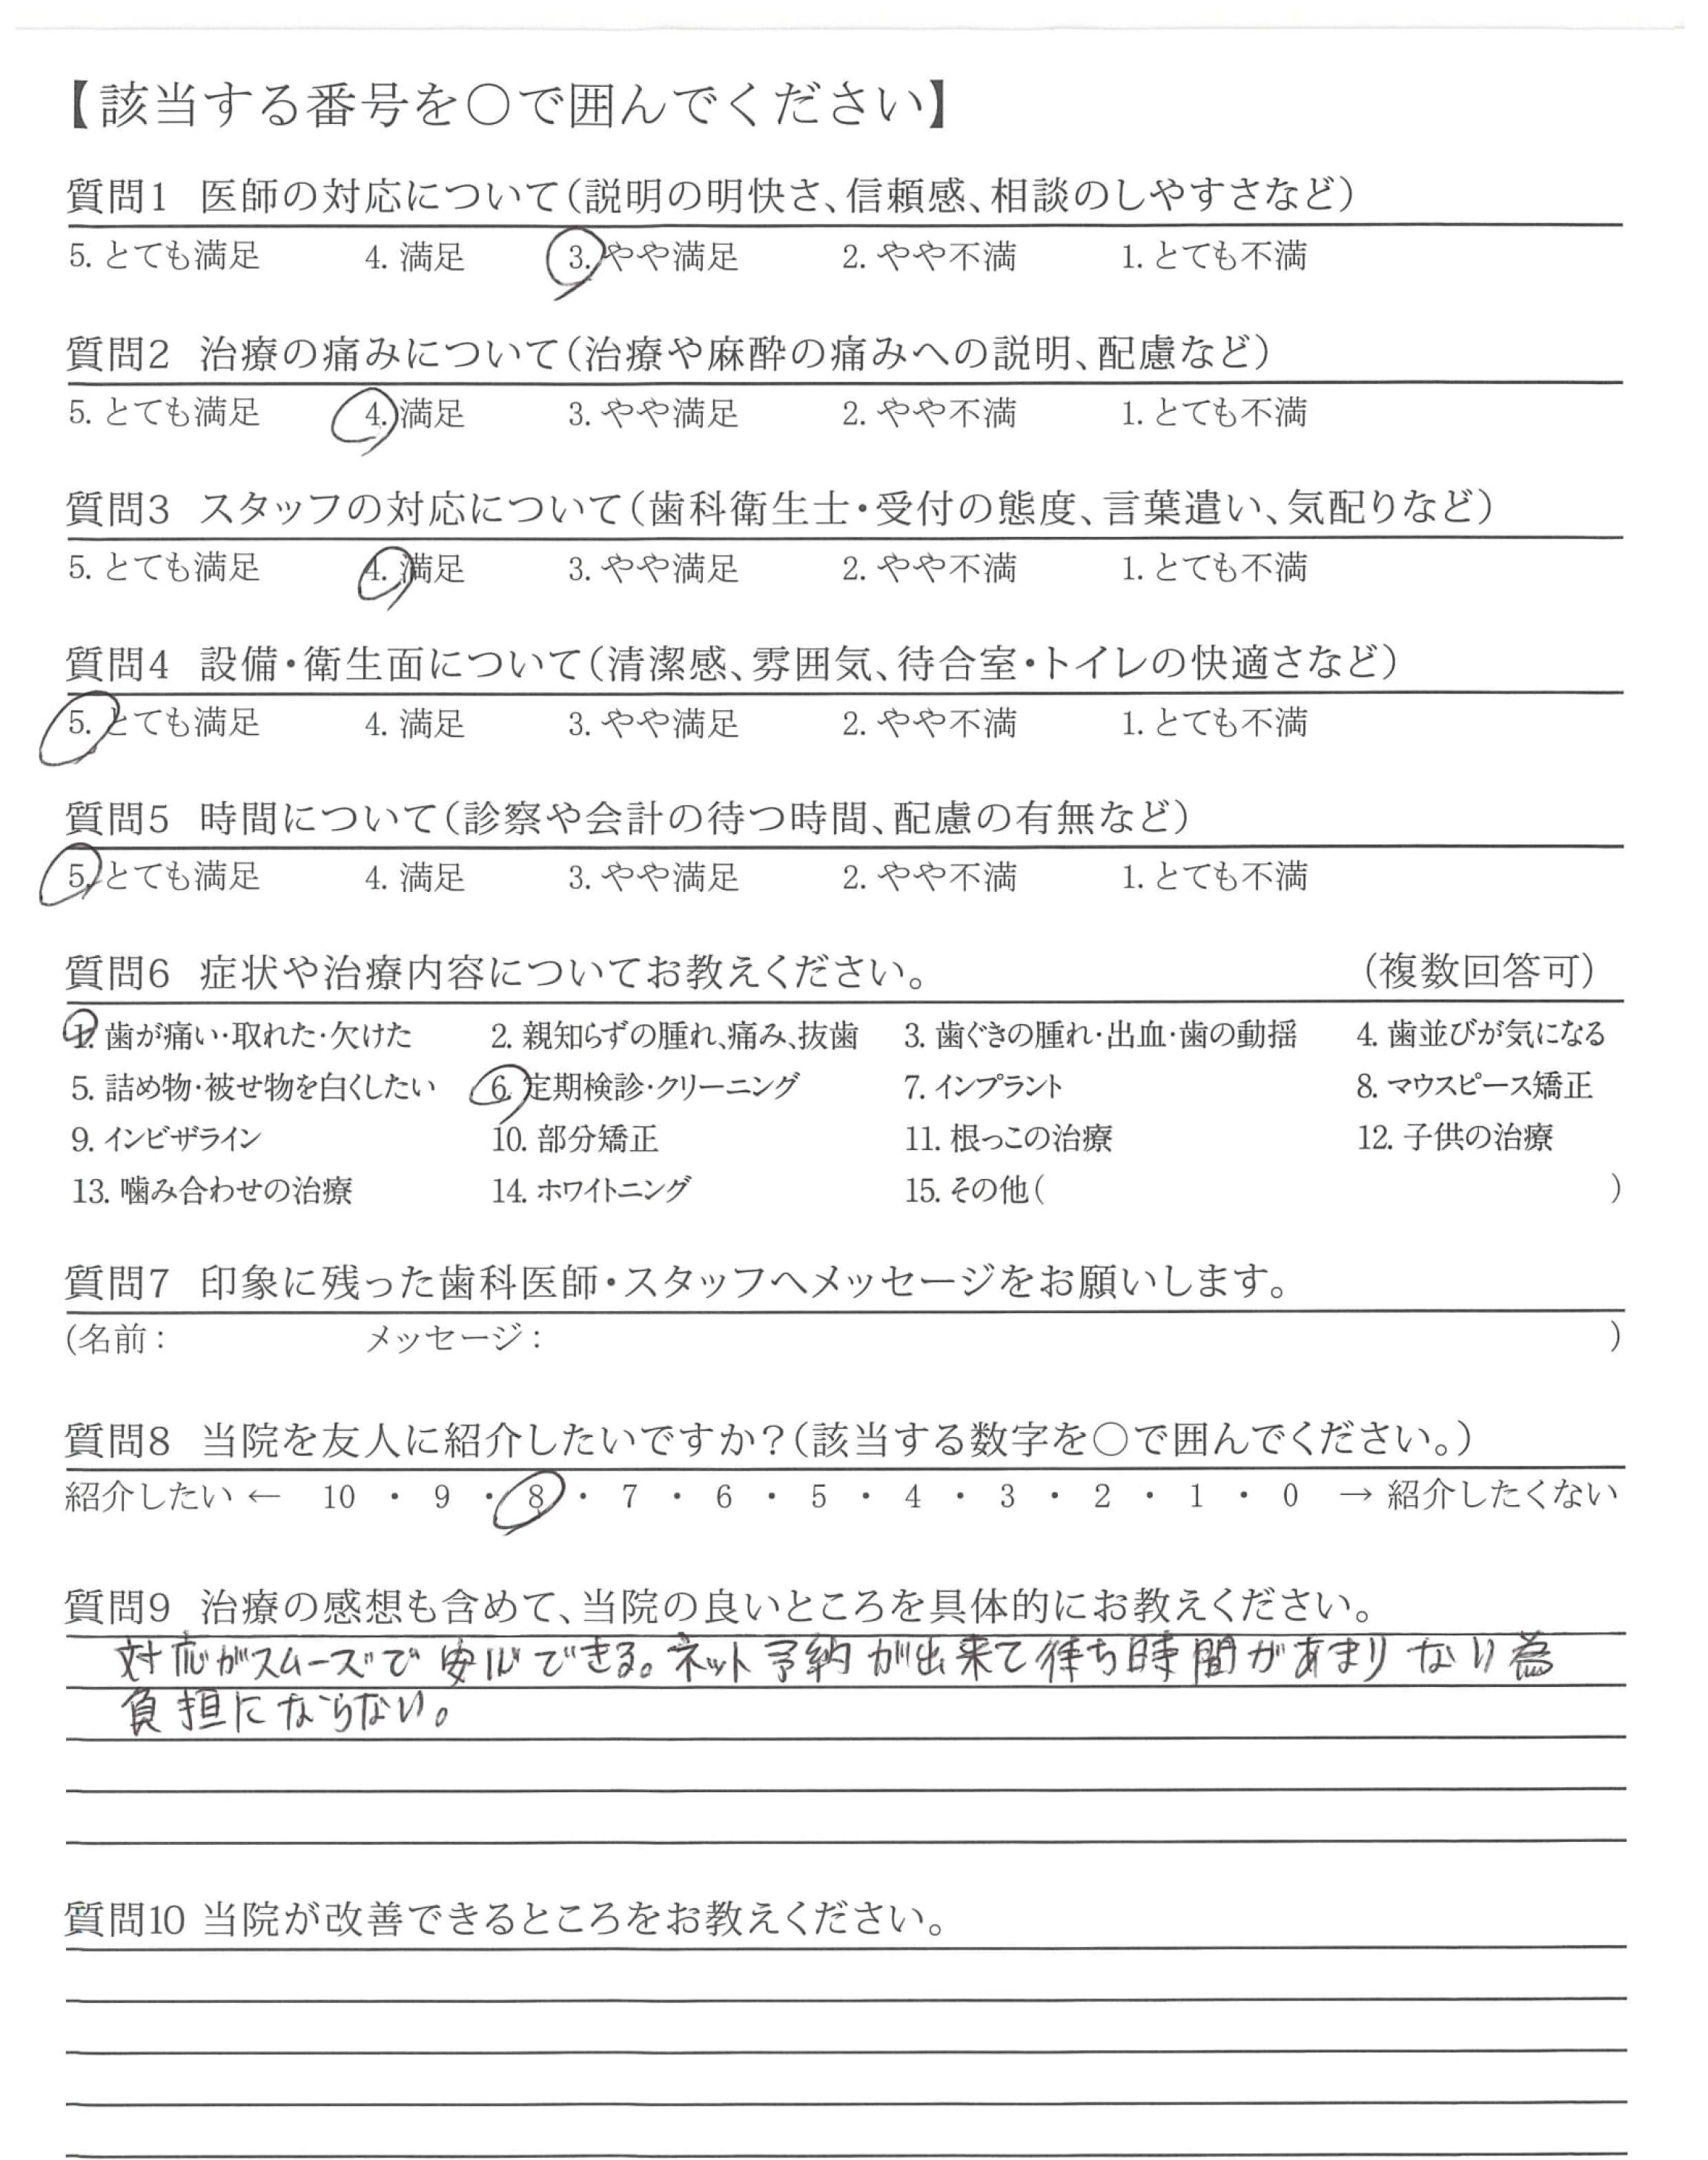 【該当する番号を〇で囲んでください】
質問1 医師の対応について(説明の明快さ、信頼感、相談のしやすさなど)
5. とても満足 4. 満足 3. やや満足 2. やや不満 1. とても不満
質問2 治療の痛みについて(治療や麻酔の痛みへの説明、配慮など)
5. とても満足 4. 満足 3. やや満足 2. やや不満 1. とても不満
質問3 スタッフの対応について(歯科衛生士・受付の態度、言葉遣い、気配りなど)
5. とても満足 4. 満足 3. やや満足 2. やや不満 1. とても不満
質問4 設備・衛生面について(清潔感、雰囲気、待合室・トイレの快適さなど)
5. とても満足 4. 満足 3. やや満足 2. やや不満 1. とても不満
質問5 時間について(診察や会計の待つ時間、配慮の有無など)
5. とても満足 4. 満足 3. やや満足 2. やや不満 1. とても不満
質問6 症状や治療内容についてお教えください。 (複数回答可)
1. 歯が痛い・取れた・欠けた 2. 親知らずの腫れ、痛み、抜歯 3. 歯ぐきの腫れ・出血・歯の動揺 4. 歯並びが気になる
5. 詰め物・被せ物を白くしたい 6. 定期検診・クリーニング 7. インプラント 8. マウスピース矯正
9. インビザライン 10. 部分矯正 11. 根っこの治療 12. 子供の治療
13. 噛み合わせの治療 14. ホワイトニング 15. その他( )
質問7 印象に残った歯科医師・スタッフへメッセージをお願いします。
(名前: メッセージ: )
質問8 当院を友人に紹介したいですか?(該当する数字を〇で囲んでください。)
紹介したい ← 10 ・ 9 ・ 8 ・ 7 ・ 6 ・ 5 ・ 4 ・ 3 ・ 2 ・ 1 ・ 0 → 紹介したくない
質問9 治療の感想も含めて、当院の良いところを具体的にお教えください。
対応がスムーズで安心できる。ネット予約が出来て待ち時間があまりない為
負担にならない。
質問10 当院が改善できるところをお教えください。